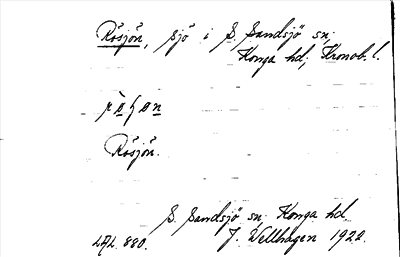 Rösjön, sjö i S. Sandsjö sn,
Konga hd, Kronob. l.
Rösjön.
S. Sandsjö sn. Konga hd.
LAL. 880. J. Wellhagen 1922.